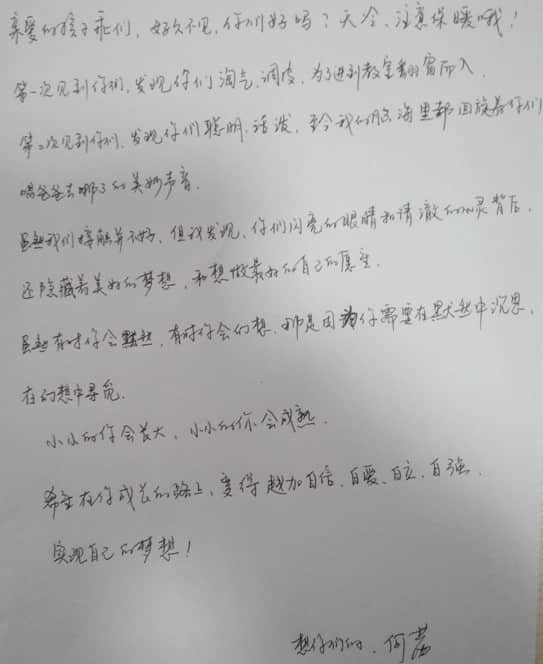 亲爱的孩子乖们，好久不见，你们好吗？天冷，注意保暖哦！
第一次见到你们，发现你们淘气，调皮，为了进到教室翻窗而入，
第二次见到你们，发现你们聪明，活泼，至今我的脑海里都回旋着你们
唱爸爸去哪了的美妙声音。
虽然我们接触并不好，但我发现，你们闪亮的眼睛和清澈的心灵背后，
还隐藏着美好的梦想，和想做最好的自己的愿望。
虽然有时你会默然，有时你会幻想，那是因为你需要在默然中沉思，
在幻想中寻觅。
小小的你会长大，小小的你会成熟。
希望在你成长的路上，变得越加自信、自爱、自立、自强，
实现自己的梦想！
想你们的，何